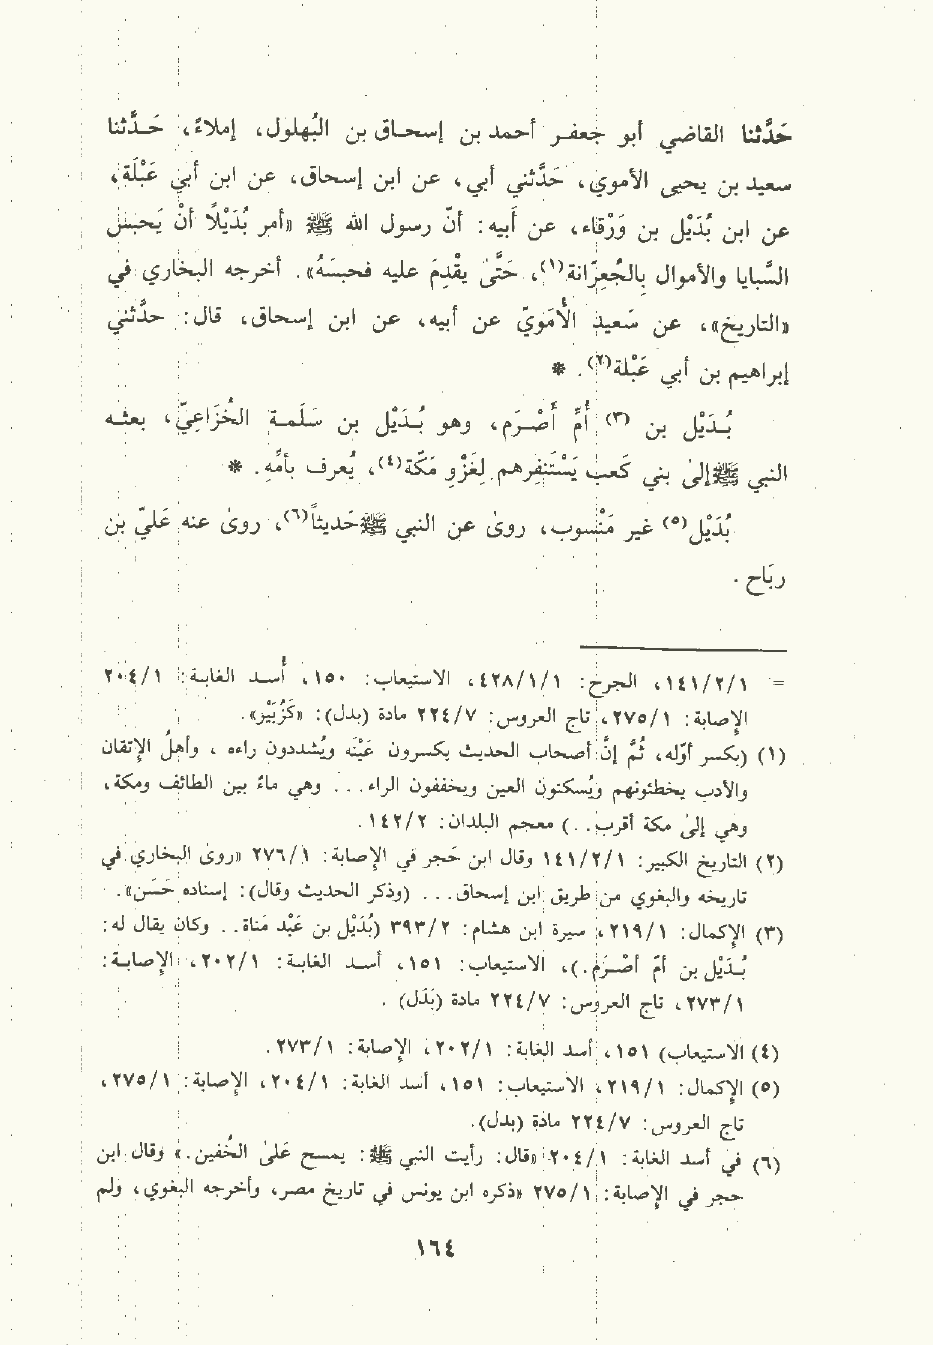 حَدَّثنا القاضي أبو جعفر أحمد بن إسحاق بن البُهلول، إملاءً، حَدَّثنا
سعيد بن يحيى الأموي، حَدَّثني أبي، عن ابن إسحاق، عن ابن أبي عَبْلَة،
عن ابن بُدَيْل بن وَرْقاء، عن أَبيه: أنّ رسول الله ﷺ «أمر بُدَيْلاً أنْ يَحبس
السَّبايا والأموال بِالجُعِرّانة(١)، حَتَّىٰ يقْدِمَ عليه فحبسَهُ». أخرجه البخاري في
«التاريخ»، عن سَعيد الأُمَويّ عن أبيه، عن ابن إسحاق، قال: حدَّثني
إبراهيم بن أبي عَبْلة(٢). *
بُدَيْل بن (٣) أُمِّ أَصْرَم، وهو بُدَيْل بن سَلَمة الخُزَاعِيّ، بعثه
النبي ﷺ إلىٰ بني كَعب يَسْتَنفِرهم لِغَزْوِ مَكّة(٤)، يُعرف بأمِّهِ. *
بُدَيْل(٥) غير مَنْسوب، روىٰ عن النبي ﷺ حَديثاً(٦)، روىٰ عنه عَليّ بن
ربَاح.
= ١٤١/٢/١، الجرح: ٤٢٨/١/١، الاستيعاب: ١٥٠، أُسد الغابة: ٢٠٤/١
الإصابة: ٢٧٥/١، تاج العروس: ٢٢٤/٧ مادة (بدل): «كَزُبَيْر».
(١) (بكسر أوّله، ثُمَّ إنّ أصحاب الحديث يكسرون عَيْنَه ويُشددون راءه ، وأهلُ الإتقان
والأدب يخطئونهم ويُسكنون العين ويخففون الراء... وهي ماءً بين الطائف ومكة،
وهي إلىٰ مكة أقرب..) معجم البلدان: ١٤٢/٢.
(٢) التاريخ الكبير: ١٤١/٢/١ وقال ابن حَجر في الإصابة: ٢٧٦/١ «روىٰ البخاري في
تاريخه والبغوي من طريق ابن إسحاق... (وذكر الحديث وقال): إسناده حَسَن».
(٣) الإكمال: ٢١٩/١، سيرة ابن هشام: ٣٩٣/٢ (بُدَيْل بن عَبْد مَناة.. وكان يقال له:
بُدَيْل بن أمّ أصْرَم.)، الاستيعاب: ١٥١، أسد الغابة: ٢٠٢/١، الإصابة:
٢٧٣/١، تاج العروس: ٢٢٤/٧ مادة (بَدَل) .
(٤) الاستيعاب) ١٥١، أسد الغابة: ٢٠٢/١، الإصابة: ٢٧٣/١.
(٥) الإكمال: ٢١٩/١، الاستيعاب: ١٥١، أسد الغابة: ٢٠٤/١، الإصابة: ٢٧٥/١،
تاج العروس: ٢٢٤/٧ مادة (بدل).
(٦) في أسد الغابة: ٢٠٤/١ «قال: رأيت النبي ﷺ: يمسح عَلىٰ الخُفين.» وقال ابن
حجر في الإصابة: ٢٧٥/١ «ذكره ابن يونس في تاريخ مصر، وأخرجه البغوي، ولم
١٦٤